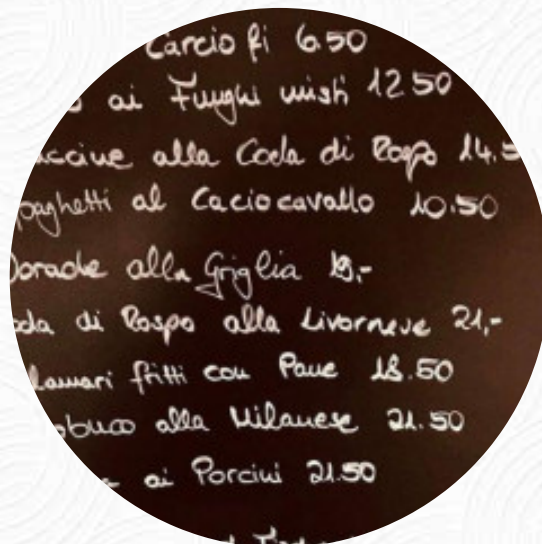 Carciofi 6.50
ai Funghi misti 12.50
alla Coda di Rospo 14.5
paghetti al Caciocavallo 10.50
Dorade alla Griglia 19,-
oda di Rospo alla Livornese 21,-
lamari fritti con Pane 18.50
obuco alla Milanese 21.50
ai Porcini 21.50